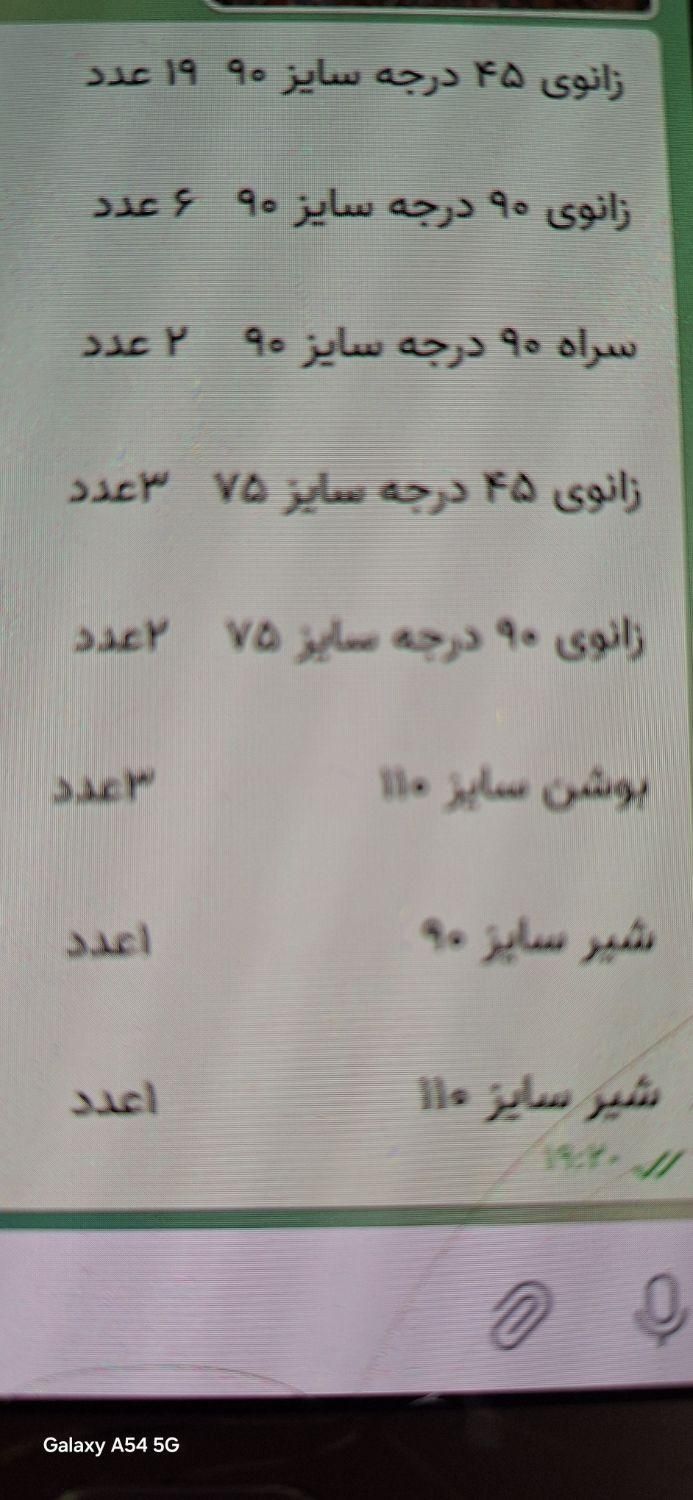 زانوی ۴۵ درجه سایز ۹۰ ۱۹ عدد
زانوی ۹۰ درجه سایز ۹۰ ۶ عدد
سراه ۹۰ درجه سایز ۹۰ ۲ عدد
زانوی ۴۵ درجه سایز ۷۵ ۳عدد
زانوی ۹۰ درجه سایز ۷۵ ۲عدد
بوشن سایز ۱۱۰ ۳عدد
شیر سایز ۹۰ ۱عدد
شیر سایز ۱۱۰ ۱عدد
۱۹:۲۰
Galaxy A54 5G